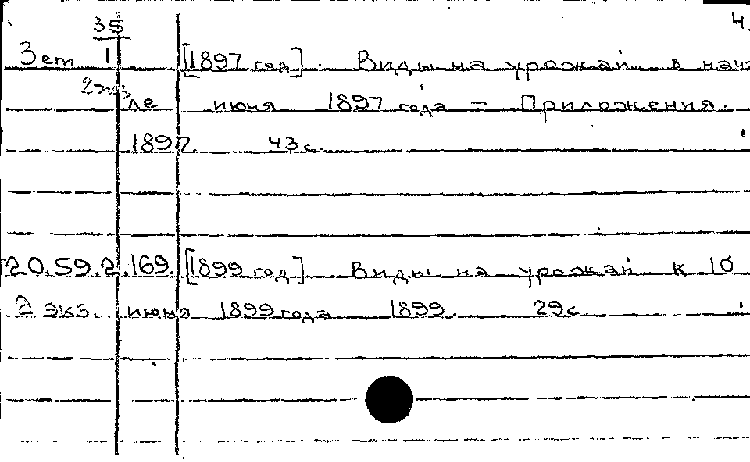 35 4.
Зет 1 [1897 год]. Виды на урожай в нач
2 экз ле июня 1897 года – Приложения.
1897. 43 с.
20.59.2.169. [1899 год]. Виды на урожай к 10
2 экз. июня 1899 года 1899. 29 с.